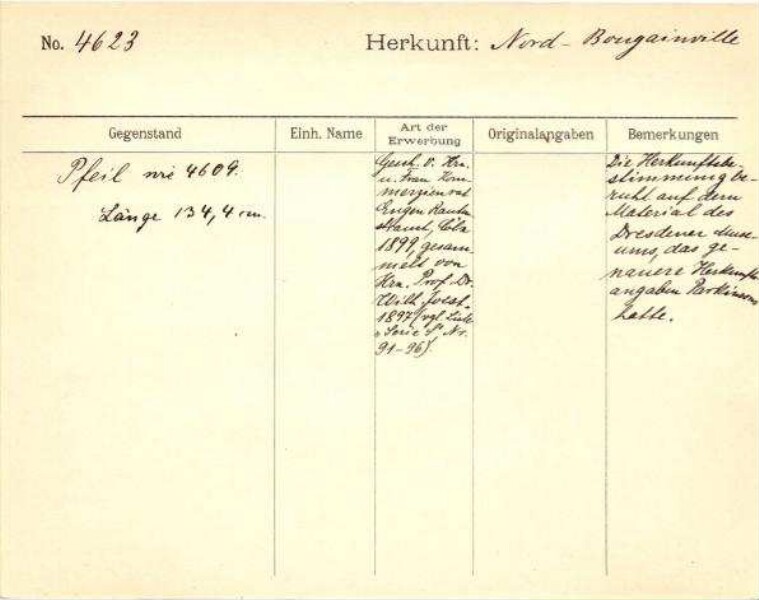 No. 4623
Herkunft: Nord-Bougainville
Gegenstand
Einh. Name
Art der
Erwerbung
Originalangaben
Bemerkungen
Pfeil wie 4609.
Länge 134,4 cm.
Gesch. v. Hrn.
u. Frau Kom-
merzienrat
Eugen Rauten
strauch, Cöln
1899, gesam-
melt von
Hrn. Prof. Dr.
Wilh. Joest.
1897 (vgl. Liste
Serie Nr.
91-96).
Die Herkunftsbe-
stimmung be-
ruht auf dem
Material des
Dresdener Muse-
ums, das ge-
nauere Herkunfts
angaben Parkinsons
hatte.